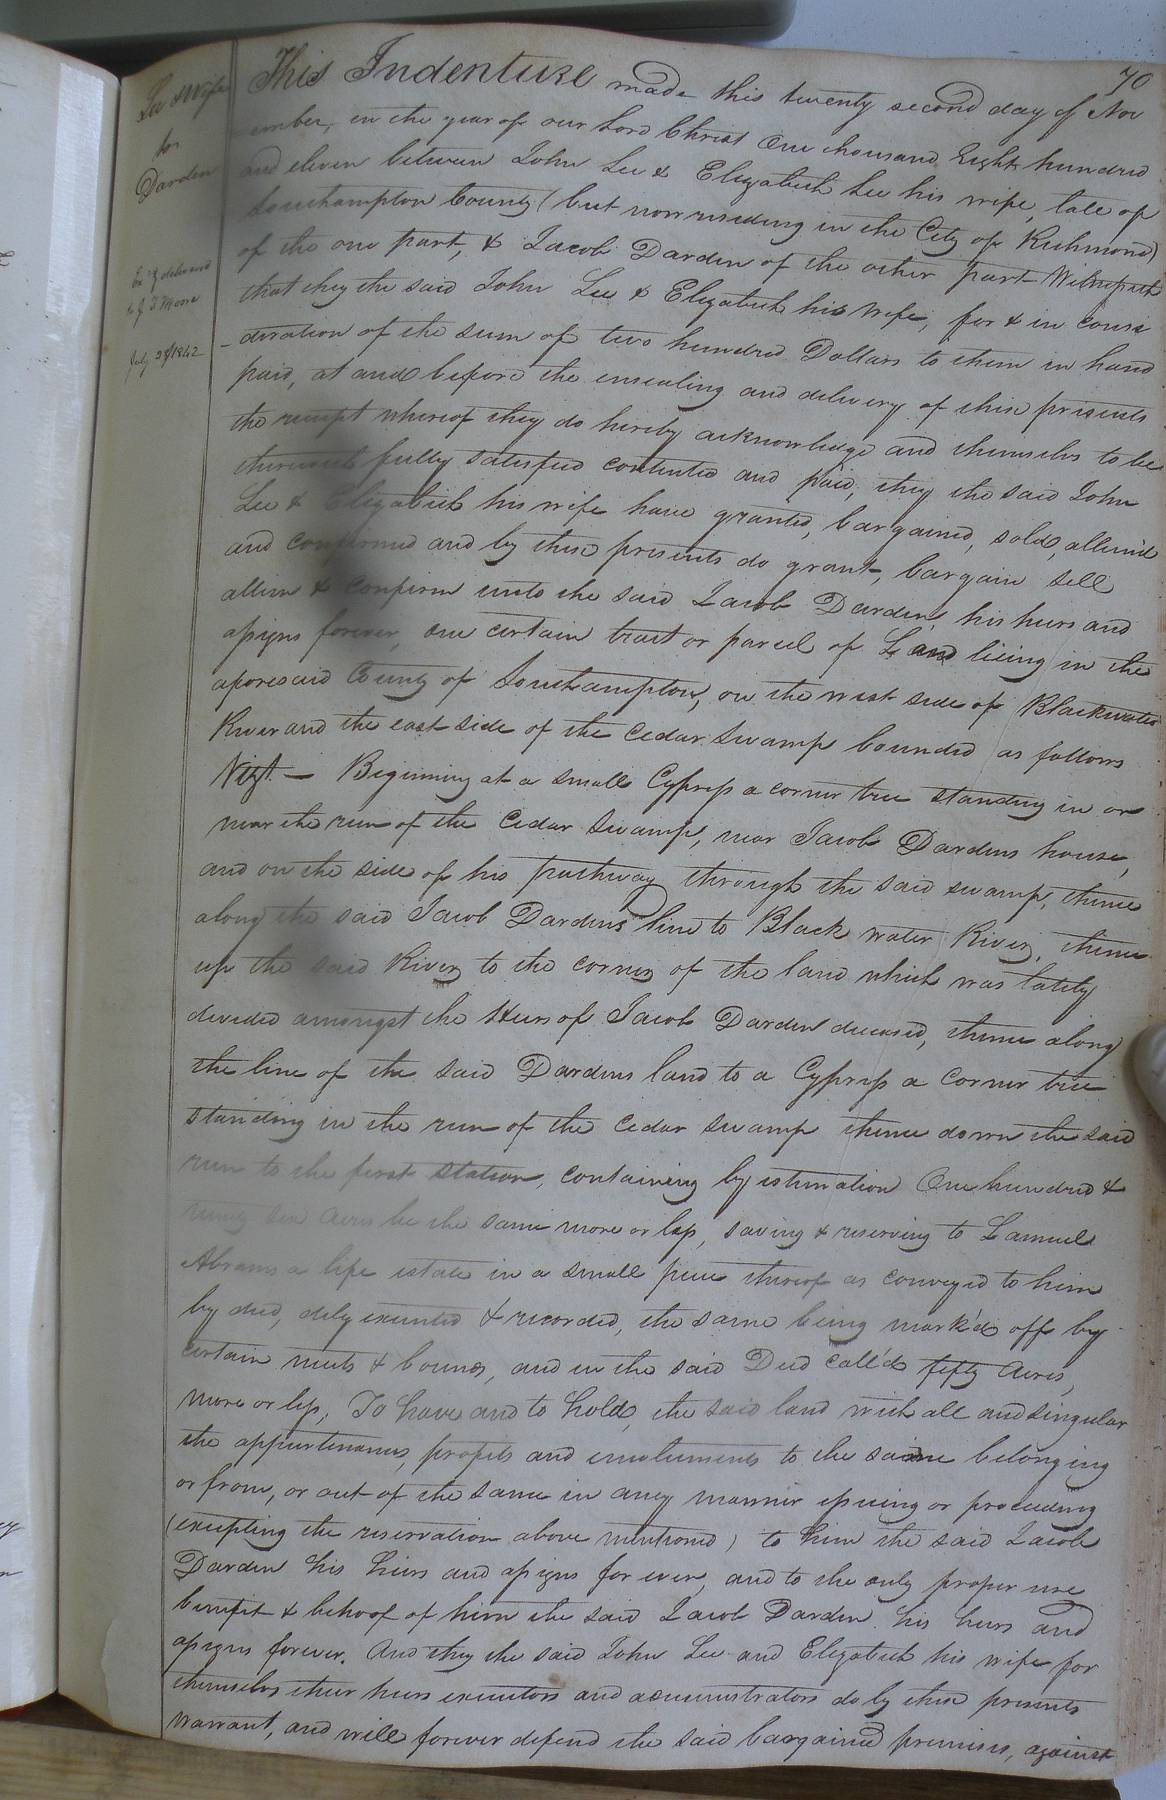 70
Lee & Wife
to
Darden
Ex'd delivered
to J T Moore
July 28/1842
This Indenture made this twenty second day of Nov
ember, in the year of our Lord Christ One thousand Eight hundred
and eleven between John Lee & Elizabeth Lee his wife, late of
Southampton County (but now residing in the City of Richmond)
of the one part, & Jacob Darden of the other part Witnesseth
that they the said John Lee & Elizabeth his Wife, for & in consi
-deration of the sum of two hundred Dollars to them in hand
paid, at and before the ensealing and delivery of these presents
the receipt whereof they do hereby acknowledge and themselves to be
therewith fully satisfied contented and paid, they the said John
Lee & Elizabeth his wife have granted, bargained, sold, alien'd
and confirmed and by these presents do grant, bargain sell
alien & confirm unto the said Jacob Darden, his heirs and
assigns forever, one certain tract or parcel of Land lieing in the
aforesaid County of Southampton, on the west side of Blackwater
River and the east side of the Cedar Swamp bounded as follows
Vizt. — Beginning at a small Cypress a corner tree standing in or
near the run of the Cedar Swamp, near Jacob Dardens house,
and on the side of his pathway through the said swamp, thence
along the said Jacob Dardens line to Black water River, thence
up the said River to the corner of the land which was lately
devided amongst the Heirs of Jacob Darden deceased, thence along
the line of the said Dardens land to a Cypress a corner tree
standing in the run of the Cedar Swamp thence down the said
run to the first station, containing by estimation One hundred &
ninety six Acres be the same more or less, saving & reserving to Samuel
Abrams a life estate in a small piece thereof as conveyed to him
by deed, duly executed & recorded, the same being mark'd off by
certain meets & bounds, and in the said Deed call'd fifty Acres,
more or less, To have and to hold, the said land with all and singular
the appurtenances, profits and emoluments to the same belonging
or from, or out of the same in any manner issuing or proceeding
(excepting the reservation above mentioned) to him the said Jacob
Darden his heirs and assigns for ever, and to the only proper use
benefit & behoof of him the said Jacob Darden his heirs and
assigns forever. And they the said John Lee and Elizabeth his wife for
themselves their heirs executors and administrators do by these presents
warrant, and will forever defend the said bargained premises, against